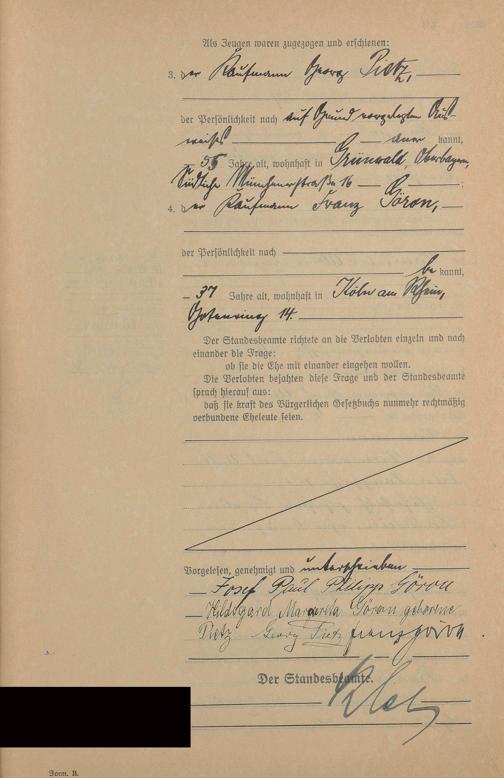 Als Zeugen waren zugezogen und erschienen:
3. der Kaufmann Georg Pietz,
der Persönlichkeit nach auf Grund vorgelegten Aus-
weises aner kannt,
55 Jahre alt, wohnhaft in Grünwald, Oberbayern,
Südliche Münchenerstraße 16
4. der Kaufmann Franz Göron,
der Persönlichkeit nach
be kannt,
37 Jahre alt, wohnhaft in Köln am Rhein,
Gotenring 14.
Der Standesbeamte richtete an die Verlobten einzeln und nach
einander die Frage:
ob sie die Ehe mit einander eingehen wollen.
Die Verlobten bejahten diese Frage und der Standesbeamte
sprach hierauf aus:
daß sie kraft des Bürgerlichen Gesetzbuchs nunmehr rechtmäßig
verbundene Eheleute seien.
Vorgelesen, genehmigt und unterschrieben
Josef Paul Philipp Göron
Hildegard Margareta Göron geborene
Pietz Georg Pietz Franz Göron
Der Standesbeamte.
Form. B.